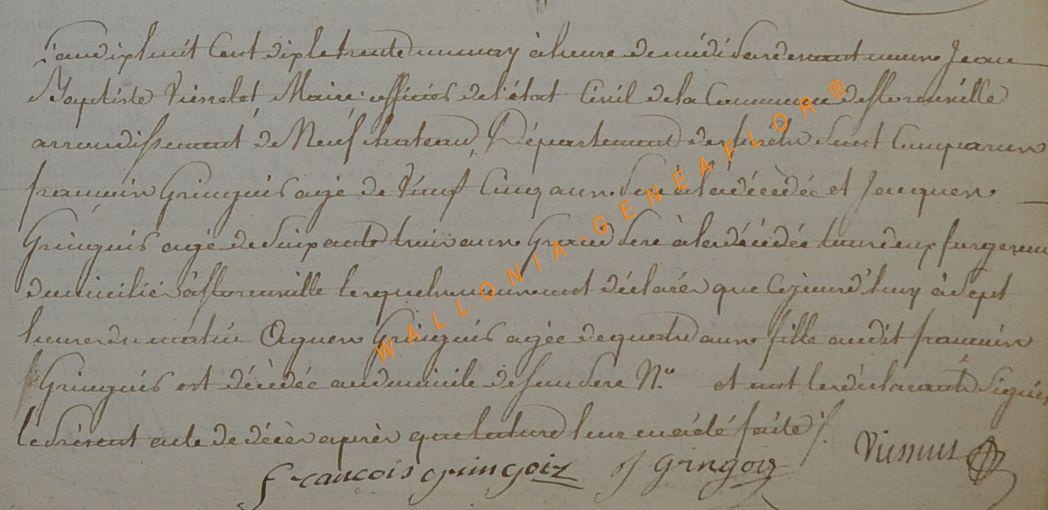 L'an dix huit cent dix le trente un may à heure de midi pardevant nous Jean
Baptiste Maire officier de l'état Civil de la Commune de florenville
arrondissement de Neufchateau, Département des forêts sont Comparus
françois Gringois agé de Cinq ans père à la décédée et Jacques
Gringois agé de soixante trois ans Grand père à la décédée tous deux forgerons
domiciliés à florenville lesquels nous ont déclarés que Cejourd'huy à sept
heures du matin Agnes Gringois agée de quatre ans fille audit françois
Gringois est décédée au domicile de son père N.° et ont les déclarants Signés
le présent acte de décès après que lecture leur en a été faite
françois gringoiz J gringoiz
WALLONIA-GENEAFLOR®